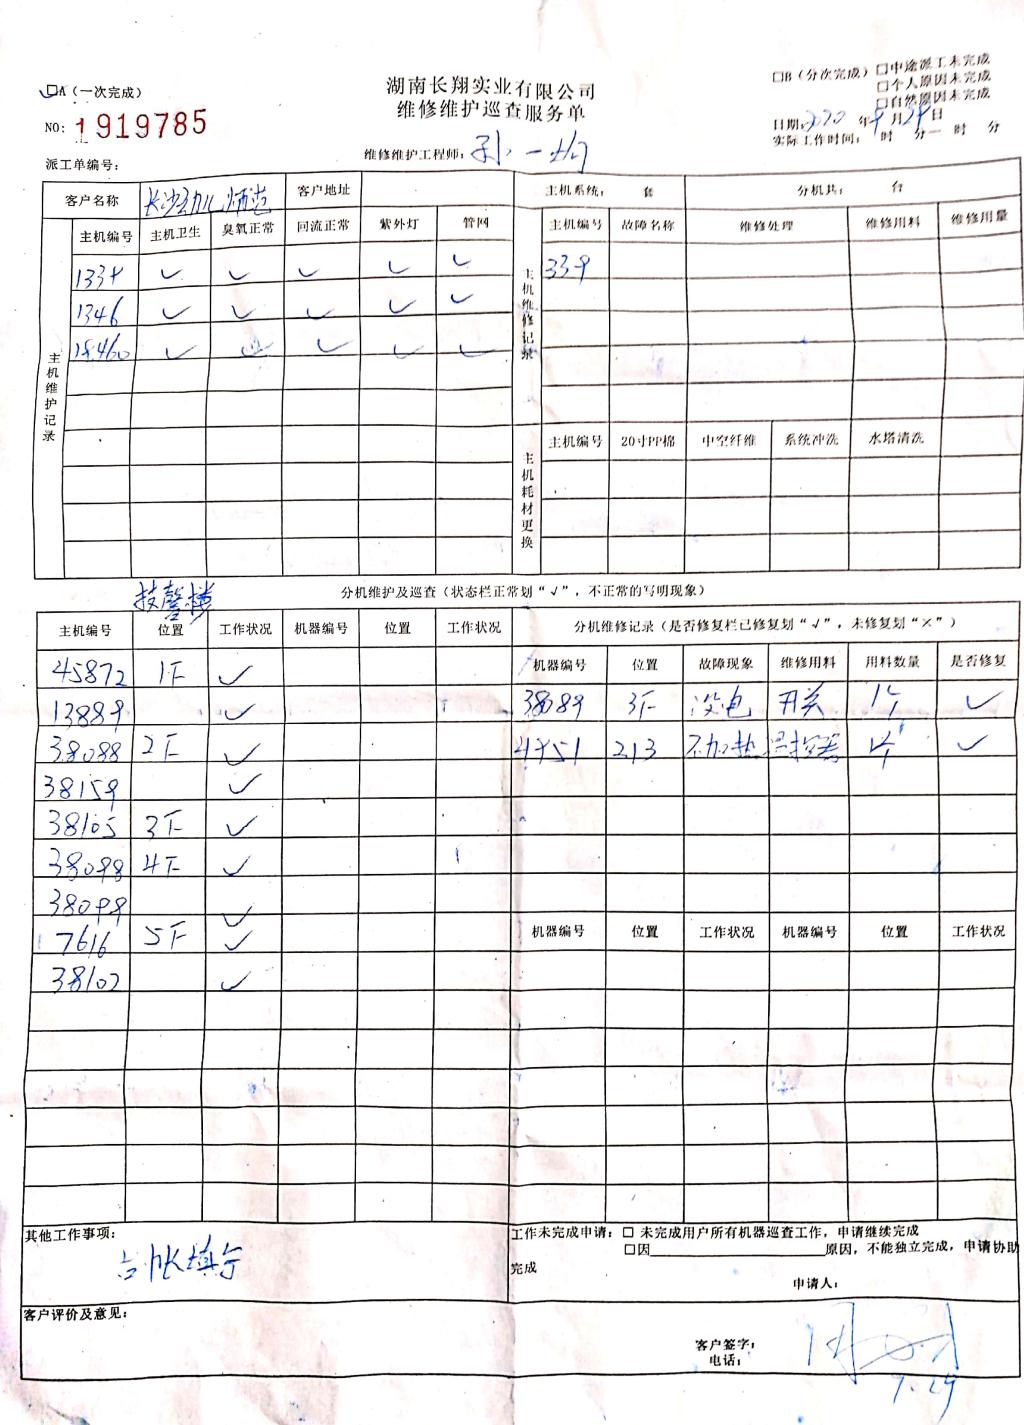 □A（一次完成）
湖南长翔实业有限公司
维修维护巡查服务单
□B（分次完成）□中途派工未完成
□个人原因未完成
□自然原因未完成
NO: 1919785
日期: 2020 年 9 月 29 日
实际工作时间: 时 分一 时 分
派工单编号:
维修维护工程师: 孙
客户名称 长沙幼儿师范 客户地址 主机系统: 套 分机共: 台
主机维护记录
主机编号 主机卫生 臭氧正常 回流正常 紫外灯 管网
1339 ✓ ✓ ✓ ✓ ✓
1346 ✓ ✓ ✓ ✓ ✓
18460 ✓ ✓ ✓ ✓ ✓
主机维修记录
主机编号 故障名称 维修处理 维修用料 维修用量
339
主机耗材更换
主机编号 20寸PP棉 中空纤维 系统冲洗 水塔清洗
技馨楼
分机维护及巡查（状态栏正常划“√”，不正常的写明现象）
主机编号 位置 工作状况 机器编号 位置 工作状况
45872 1F ✓
13889 ✓
38088 2F ✓
38159 ✓
38105 3F ✓
38098 4F ✓
38099 ✓
7616 5F ✓
38102 ✓
分机维修记录（是否修复栏已修复划“√”，未修复划“×”）
机器编号 位置 故障现象 维修用料 用料数量 是否修复
38089 3F 没电 开关 1个 ✓
4751 213 不加热 温控器 1个 ✓
机器编号 位置 工作状况 机器编号 位置 工作状况
其他工作事项:
台帐填写
工作未完成申请: □ 未完成用户所有机器巡查工作，申请继续完成
□因 原因，不能独立完成，申请协助
完成
申请人:
客户评价及意见:
客户签字:
电话:
9.29